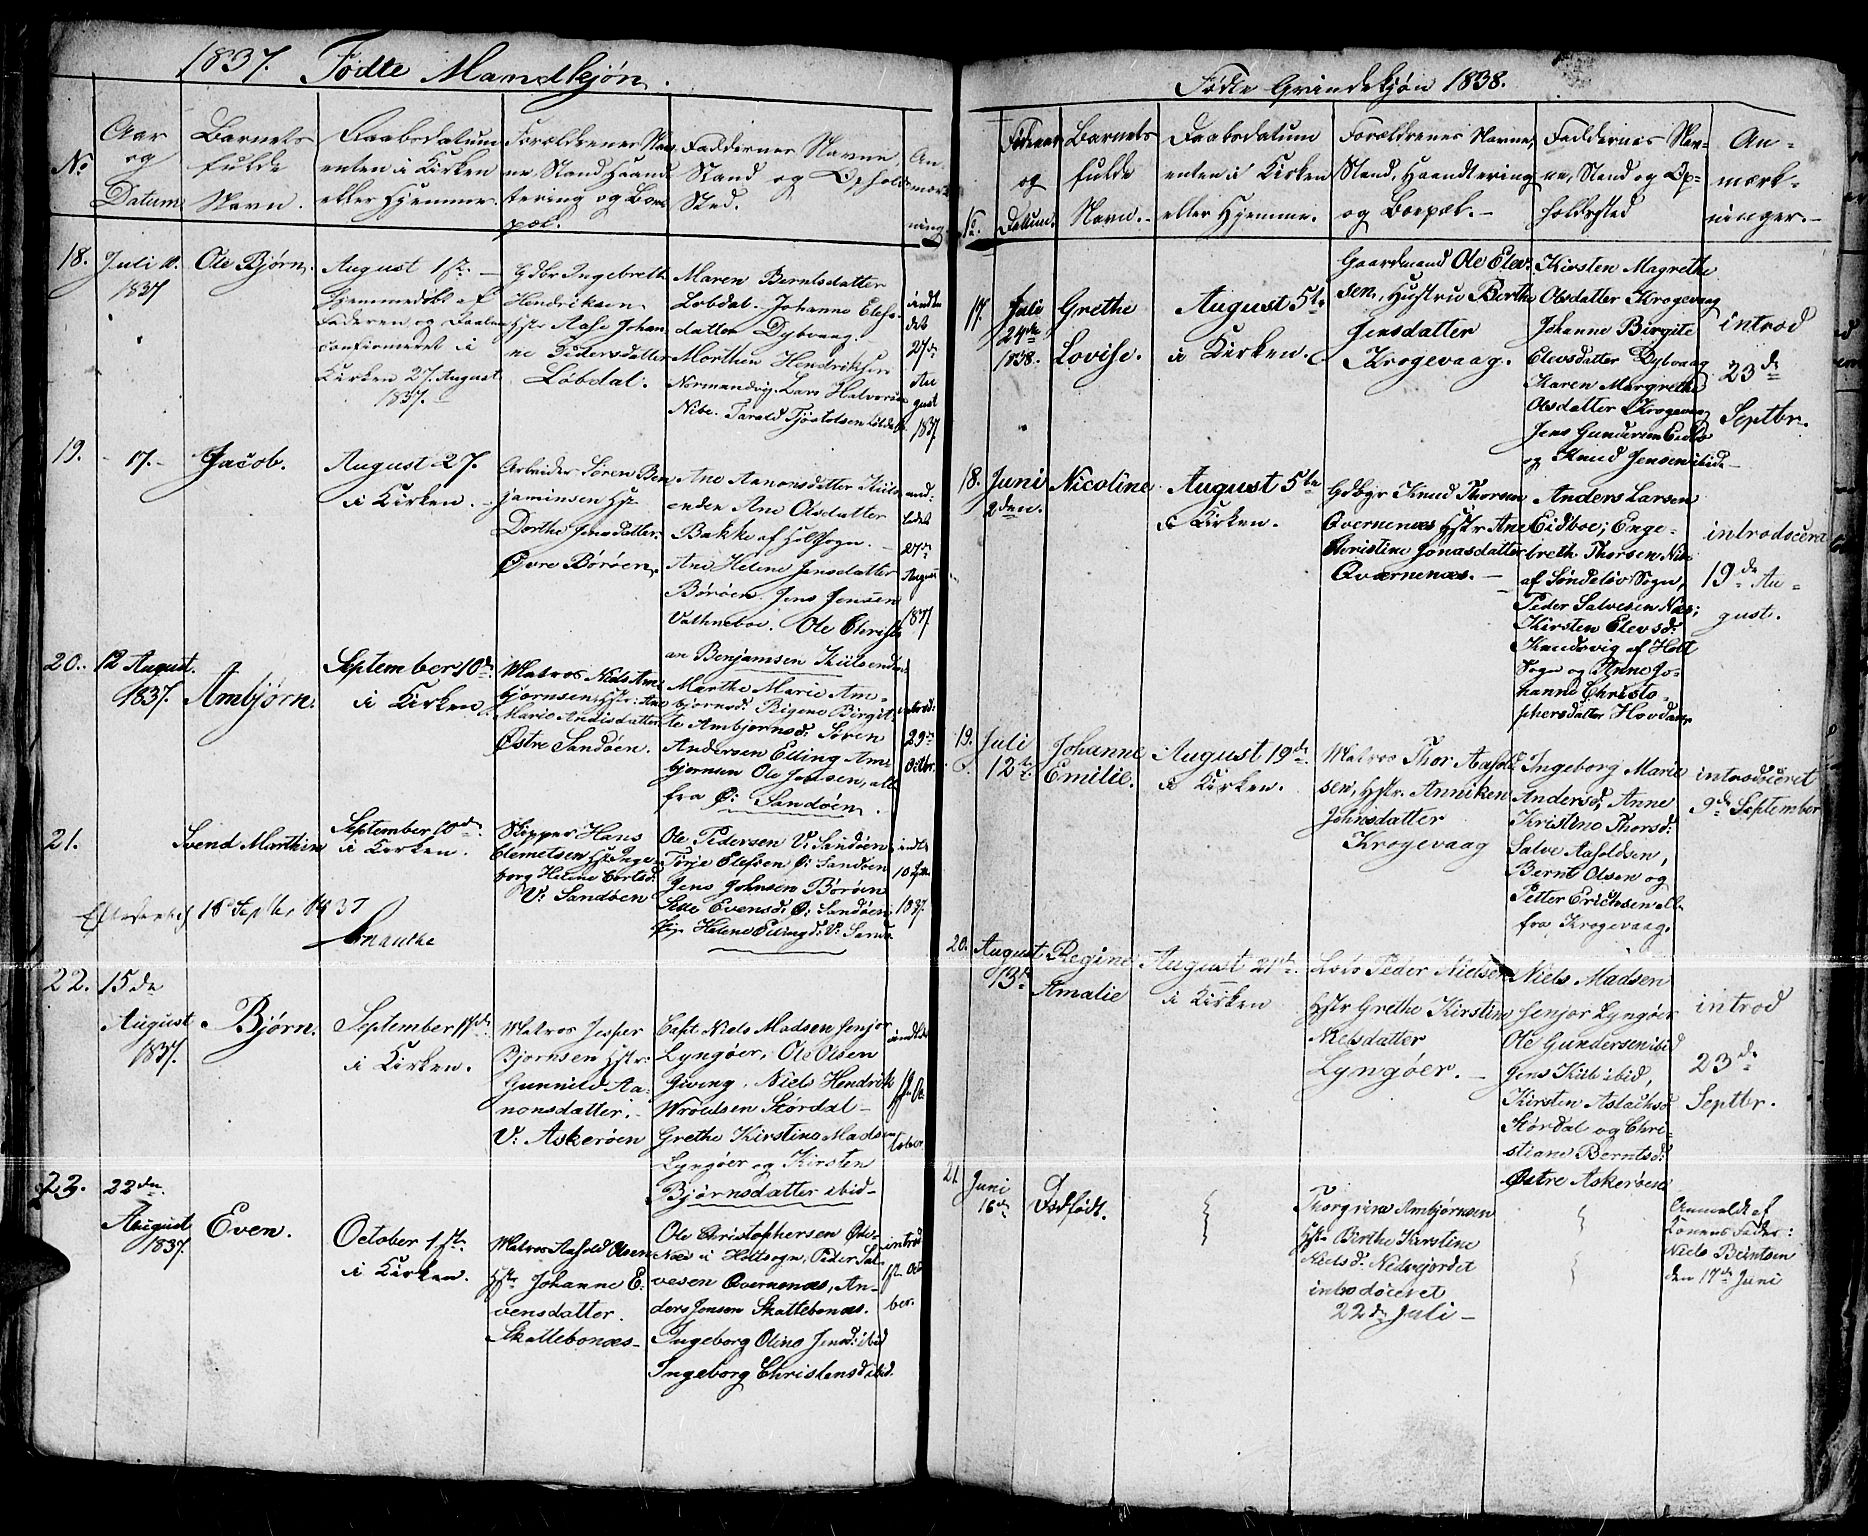 1837. Fødte Mandkjøn.
No
Aar
og
Datum
Barnets
fulde
Navn.
Daabsdatum
enten i Kirken
eller Hjemme.
Forældrenes Nav
ne Stand Haand
tering og Boe
pæl.
Faddernes Navne
Stand og Opholds
Sted.
An
mærk
ning
18. Juli
1837
Ole Bjørn.
August 1ste
Hjemmedøbt af
Faderen og Daaben
confirmeret i
Kirken 27. August
1837.
Gdbr Ingebreth
Hendriksen
Hstr Aase Johan
ne Pedersdatter
Løbdal.
Maren Berntsdatter
Løbdal. Johanne Elefs
datter Dybvaag.
Morthen Hendriksen
Normandvig. Lars Halvorsen
Nibe. Tarald Tjøstolsen Løbdal
27de
Au
gust
1837
19. - 17. -
Jacob.
August 27.
i Kirken.
Arbeider Søren Ben
jaminsen Hstr
Dorthe Jensdatter
Øvre Børøen.
Ane Aanonsdatter
Ane Olsdatter
Bakke af Holt Sogn.
Ane Helene Jensdatter
Børøen. Jens Jensen
Vathneboe. Ole Christi
an Benjamsen
27de
August
1837
20. 12 August.
1837.
Ambjørn.
September 10de
i Kirken
Matros Niels Am
bjørnsen, Hstr: Ane
Marie Andisdatter
Østre Sandøen.
Marthe Marie Am
bjørnsd. Rigene Birgit
te Ambjørnsd. Søren
Andersen Elling Am
bjørnsen Ole Jensen, alle
fra Ø: Sandøen.
29de
Octbr.
21.
Svend Marthin
September 10de
i Kirken.
Skipper Hans
Clemetsen Hstr Inge
borg Helene
V: Sandøen
Ole Pedersen V: Sandøen
Terje Elefsen Ø: Sandøen
Jens Johnsen Børøen
Evensd. Ø: Sandøen
Helene Ellingd: V: Sandø
1837.
18 Septbr 1837
22. 15de
August
1837.
Bjørn.
September 17de
i Kirken.
Matros Jesper
Bjørnsen Hstr:
Gunnild Aa
nonsdatter.
V: Askerøen
Capt Niels Madsen Senjor
Lyngøer, Ole Olsen
Giving, Niels Hendrik
Wroldsen Stordal
Grethe Kirstine Madsen
Lyngøer og Kirsten
Bjørnsdatter ibid
23. 22den
August
1837.
Even.
October 1ste
i Kirken.
Matros Aasold Olsen
Hstr Johanne E
vensdatter.
Skattebonæs
Ole Christophersen
Næs i Holtsogn, Peder Sal
vesen Qvernenæs, An
ders Jensen Skattebonæs.
Ingeborg Oline Jensd: ibid
Ingeborg Christensd ibid.
Fødte Qvindekjøn 1838.
No
og
Datum.
Barnets
fulde
Navn.
Daabsdatum
enten i Kirken
eller Hjemme.
Forældrenes Navne,
Stand, Haandtering
og Boepæl.
Faddernes Nav-
ne, Stand og Op-
holdssted
An-
mærk-
ninger.
17. Juli
24de
1838.
Grethe
Lovise.
August 5te
i Kirken.
Gaardmand Ole Elev
sen, Hustru Berthe
Jensdatter
Krogevaag.
Kirsten Magrethe
Olsdatter Krogevaag
Johanne Birgite
Elevsdatter Dybvaag
Karen Margrethe
Olsdatter Krogevaag
Jens Gundersen Eidbo
og Knud Jensen ibid
introd
23de
Septbr.
18. Juni
2den.
Nicoline
August 5te
i Kirken.
Gdbgr Knud Thorsen
Qvernenæs Hstr Ane
Christine Jonasdatter
Qværnenæs.
Anders Larsen
Eidboe; Enge-
breth Thorsen
af Søndeløv Sogn,
Peder Salvesen Næs;
Kirsten Elevsd:
af Holt
Sogn og Anne Jo-
hanne Christo-
phersdatter Hovdan
introdscera
19de Au-
gust.
19. Juli
12te
Johanne
Emilie.
August 19de
i Kirken.
Matros Thor Aasold
sen, Hstr. Anniken
Johnsdatter
Krogevaag
Ingeborg Marie
Andersd, Anne
Kristine Thorsd:
Salve Aasoldsen,
Bernt Olsen og
Petter Erichsen alle
fra Krogevaag.
introduceret
9de September
20. August
13de
Regine
Amalie
August 21de
i Kirken
Lods Peder Nielsen
Hstr Grethe Kirstine
Nielsdatter
Lyngøer.
Niels Madsen
Senjor Lyngøer
Ole Gundersen ibid
Jens Kiil ibid,
Kirsten Aslachsd
Stordal og Chri-
stiane Berntsd:
Østre Askerøen
introd
23de
Septbr.
21. Juni
16de
Dødfødt.
Thorgrim Ambjørnsen
Hstr Birthe Kirstine
Nielsd: Nedrejordet
introduceret
22de Juli
Anmeldt af
Konens Fader:
Niels Berntsen
den 17de Juni